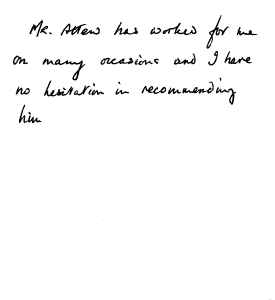 Mr. Attew has worked for me
on many occasions and I have
no hesitation in recommending
him